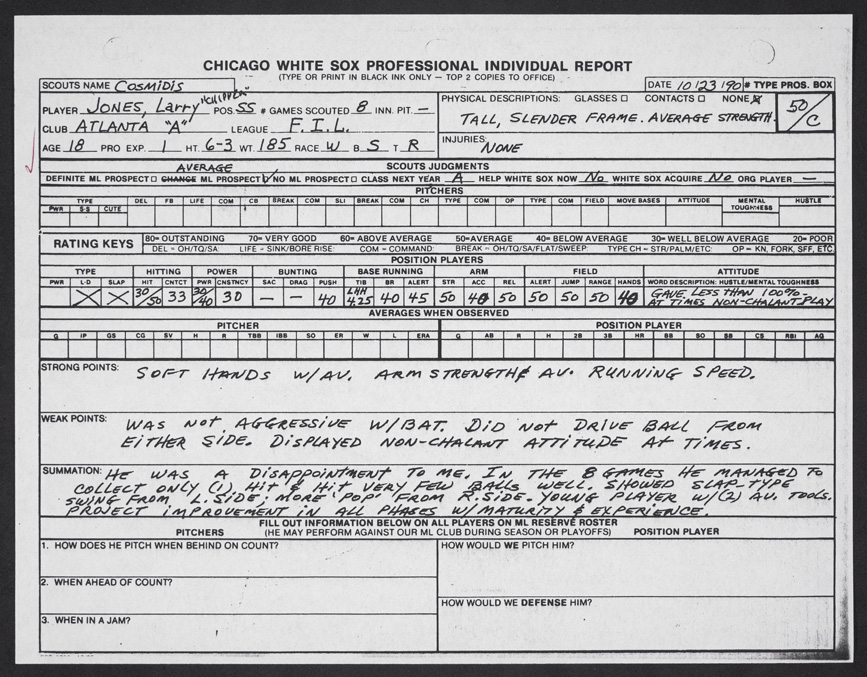 CHICAGO WHITE SOX PROFESSIONAL INDIVIDUAL REPORT
(TYPE OR PRINT IN BLACK INK ONLY — TOP 2 COPIES TO OFFICE)
SCOUTS NAME COSMIDIS DATE 10/23/90 # TYPE PROS. BOX
50/C
PLAYER JONES, Larry "CHIPPER" POS. SS # GAMES SCOUTED 8 INN. PIT. —
CLUB ATLANTA "A" LEAGUE F.I.L.
AGE 18 PRO EXP. 1 HT. 6-3 WT. 185 RACE W B. S T. R
PHYSICAL DESCRIPTIONS: GLASSES □ CONTACTS □ NONE ☒
TALL, SLENDER FRAME. AVERAGE STRENGTH.
INJURIES: NONE
AVERAGE SCOUTS JUDGMENTS
DEFINITE ML PROSPECT □ CHANCE ML PROSPECT ☑ NO ML PROSPECT □ CLASS NEXT YEAR A HELP WHITE SOX NOW No WHITE SOX ACQUIRE No ORG PLAYER —
PITCHERS
TYPE DEL FB LIFE COM CB BREAK COM SLI BREAK COM CH TYPE COM OP TYPE COM FIELD MOVE BASES ATTITUDE MENTAL TOUGHNESS HUSTLE
PWR S-S CUTE
RATING KEYS 80=OUTSTANDING 70=VERY GOOD 60=ABOVE AVERAGE 50=AVERAGE 40=BELOW AVERAGE 30=WELL BELOW AVERAGE 20=POOR
DEL=OH/TQ/SA. LIFE=SINK/BORE RISE: COM=COMMAND: BREAK=OH/TQ/SA/FLAT/SWEEP: TYPE CH=STR/PALM/ETC: OP=KN, FORK, SFF, ETC.
POSITION PLAYERS
TYPE HITTING POWER BUNTING BASE RUNNING ARM FIELD ATTITUDE
PWR L-D SLAP HIT CNTCT PWR CNSTNCY SAC DRAG PUSH TIB BR ALERT STR ACC REL ALERT JUMP RANGE HANDS WORD DESCRIPTION: HUSTLE/MENTAL TOUGHNESS
X X 30/50 33 30/40 30 — — 40 LHH 4.25 40 45 50 40 50 50 50 50 40 GAVE LESS THAN 100%-
AT TIMES NON-CHALANT PLAY
AVERAGES WHEN OBSERVED
PITCHER POSITION PLAYER
G IP GS CG SV H R TBB IBB SO ER W L ERA G AB R H 2B 3B HR BB SO SB CS RBI AG
STRONG POINTS: SOFT HANDS W/AV. ARM STRENGTH & AV. RUNNING SPEED.
WEAK POINTS: WAS NOT AGGRESSIVE W/BAT. DID NOT DRIVE BALL FROM
EITHER SIDE. DISPLAYED NON-CHALANT ATTITUDE AT TIMES.
SUMMATION: HE WAS A DISAPPOINTMENT TO ME. IN THE 8 GAMES HE MANAGED TO
COLLECT ONLY (1) HIT & HIT VERY FEW BALLS WELL. SHOWED SLAP-TYPE
SWING FROM L.SIDE; MORE 'POP' FROM R.SIDE. YOUNG PLAYER W/(2) AV. TOOLS.
PROJECT IMPROVEMENT IN ALL PHASES W/MATURITY & EXPERIENCE.
FILL OUT INFORMATION BELOW ON ALL PLAYERS ON ML RESERVE ROSTER
PITCHERS (HE MAY PERFORM AGAINST OUR ML CLUB DURING SEASON OR PLAYOFFS) POSITION PLAYER
1. HOW DOES HE PITCH WHEN BEHIND ON COUNT? HOW WOULD WE PITCH HIM?
2. WHEN AHEAD OF COUNT?
HOW WOULD WE DEFENSE HIM?
3. WHEN IN A JAM?